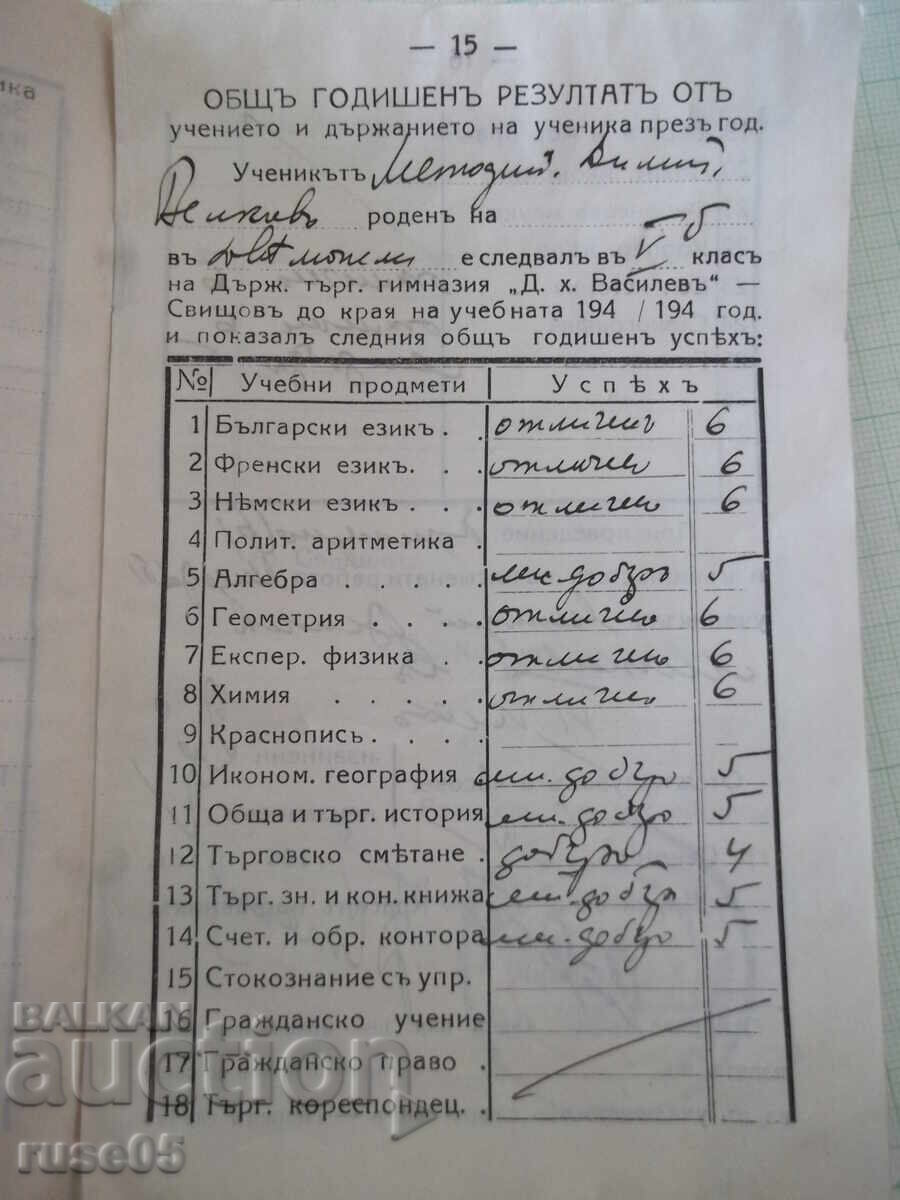 — 15 —
ОБЩЪ ГОДИШЕНЪ РЕЗУЛТАТЪ ОТЪ
учението и държанието на ученика презъ год.
Ученикътъ Методий. Димит.
Велковъ роденъ на
въ е следвалъ въ V б класъ
на Държ. търг. гимназия „Д. х. Василевъ" —
Свищовъ до края на учебната 194 / 194 год.
и показалъ следния общъ годишенъ успѣхъ:
№ Учебни продмети Успѣхъ
1 Български езикъ . . отличенъ 6
2 Френски езикъ. . . отличен 6
3 Нѣмски езикъ . . . отличен 6
4 Полит. аритметика .
5 Алгебра . . . . . мн. добъръ 5
6 Геометрия . . . . отличен 6
7 Експер. физика . . отличен 6
8 Химия . . . . . отличен 6
9 Краснопись . . . .
10 Иконом. география мн. добър 5
11 Обща и търг. история мн. добър 5
12 Търговско смѣтане . добър 4
13 Търг. зн. и кон. книжа мн. добър 5
14 Счет. и обр. контора мн. добър 5
15 Стокознание съ упр.
16 Гражданско учение
17 Гражданско право .
18 Търг. кореспондец. .
ика
BALKAN
auction
ruse05